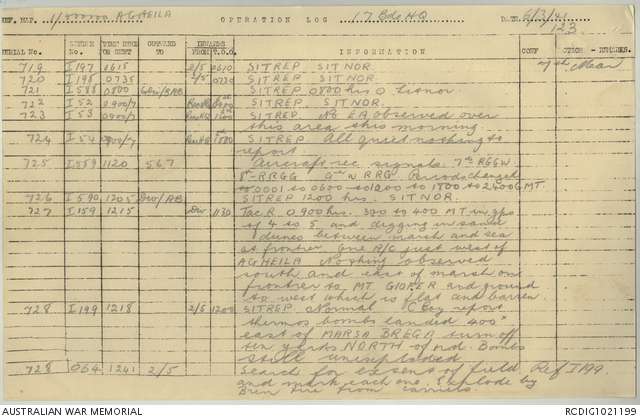 REF. MAP. 1/ AGHEILA OPERATION LOG 17 Bde HQ DATE 6/3/41
123
SERIAL No. FROM T.O.O. INFORMATION
719 I197 0615 2/5 0610 SITREP SITNOR. 7th Mar
720 I198 0735 2/5 0730 SITREP. SITNOR.
721 I588 0800 SITREP 0800 hrs
722 I52 0900/7 SITREP. SITNOR.
723 I53 0900/7 SITREP. No EA observed over
this area this morning.
724 I54 0900/7 SITREP All quiet nothing to
report.
725 I589 1120 567 Aircraft rec. signals. 7th RGGW
8th RRGG 9th W RRG. Periods changed
to 0001 to 0600 to 1200 to 1800 to 2400 GMT.
726 I590 1205 SITREP 1200 hrs. SITNOR.
727 I159 1215 Div 1130 Tac R. 0900 hrs. 300 to 400 MT in gps
of 4 to 5 and digging in sand
dunes between marsh and sea
at frontier. One A/C just west of
AGHEILA Nothing observed
south and east of marsh on
frontier to MT GIOFER and ground
to west which is flat and barren.
728 I199 1218 2/5 1200 SITREP Normal C Coy report
thermos bombs landed 400x
east of MARSA BREGA turn off
ten yards NORTH of rd. Bombs
still unexploded
728 O54 1241 2/5 Search for extent of field Ref I199.
and mark each one. Explode by
Bren fire from carriers
AUSTRALIAN WAR MEMORIAL RCDIG1021199